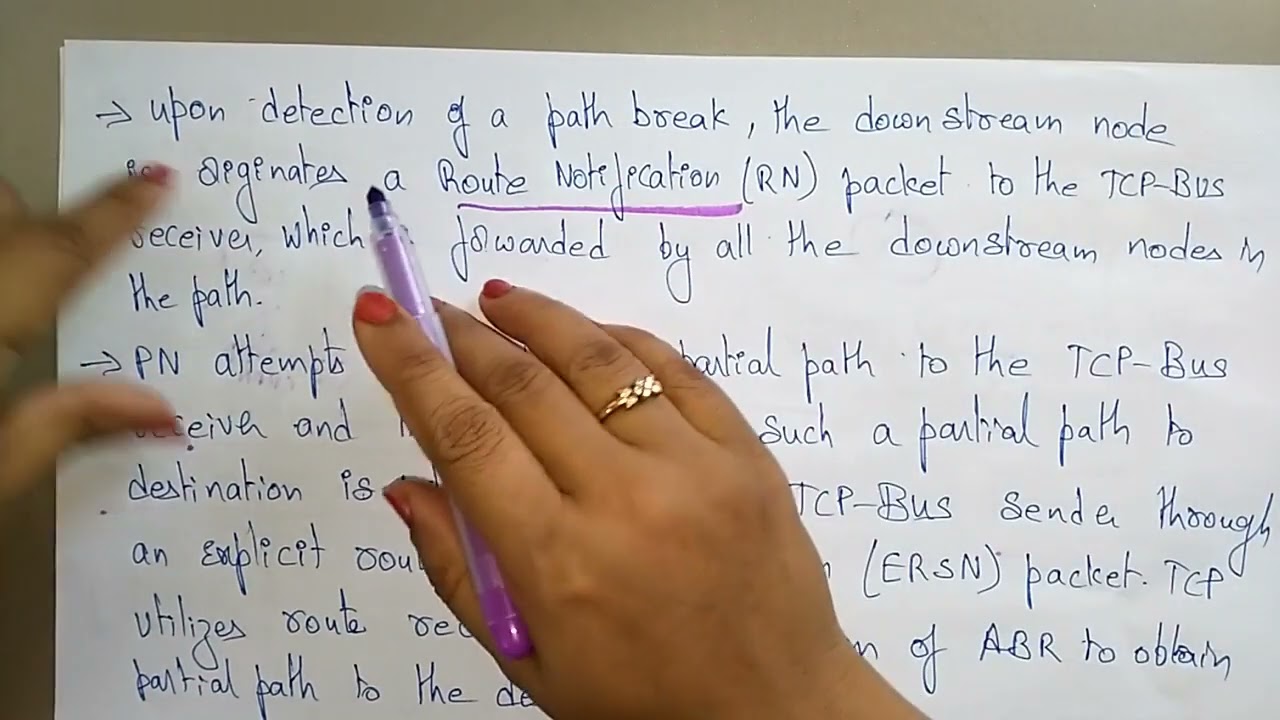 → upon detection of a path break, the downstream node
originates a Route Notification (RN) packet to the TCP-BUS
receiver, which forwarded by all the downstream nodes in
the path.
→ PN attempts partial path to the TCP-Bus
receiver and such a partial path to
destination is TCP-Bus sender through
an explicit (ERSN) packet. TCP
utilizes route of ABR to obtain
partial path to the